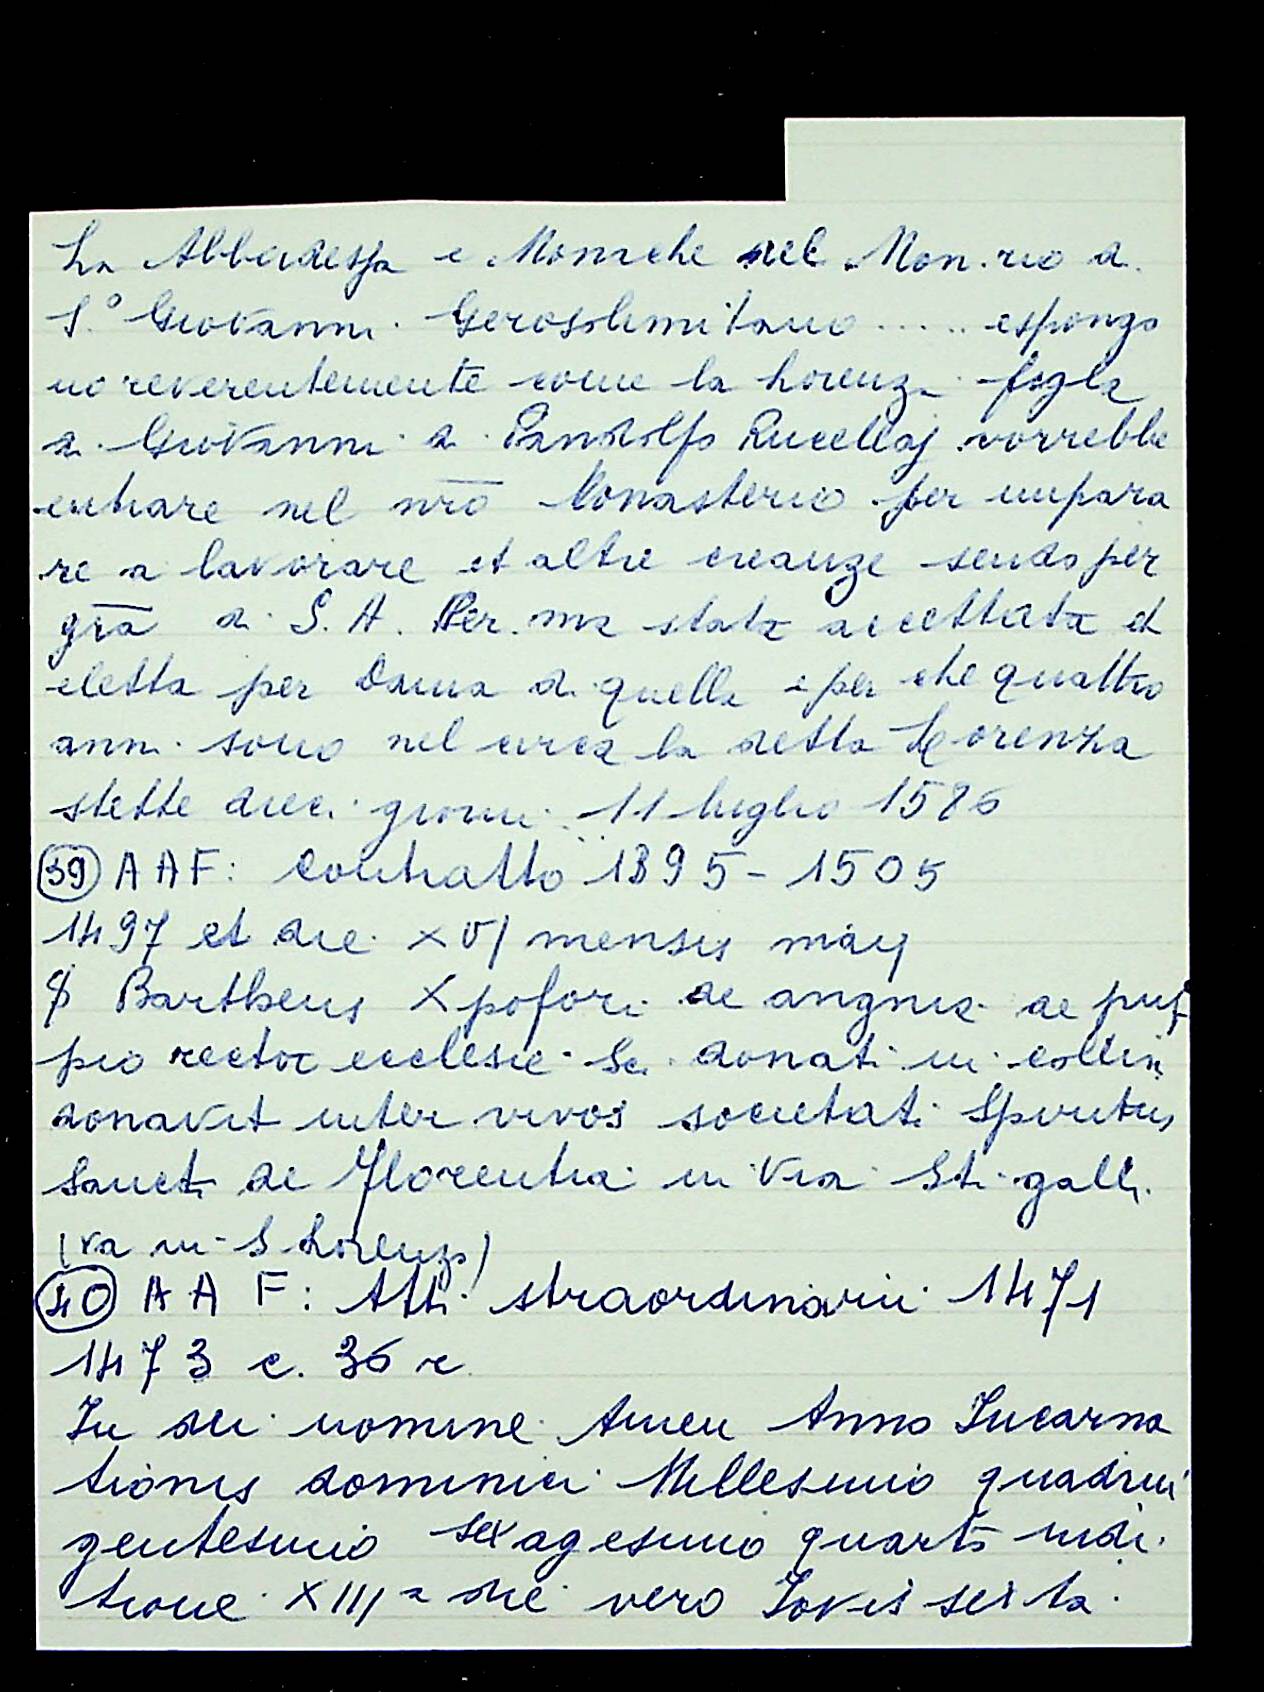 La Abbadessa e Monache del Mon.rio di
S.° Giovanni Gerosolimitano ..... espongo
no reverentemente come la Lorenza figla
di Giovanni di Pandolfo Rucellaj vorrebbe
entrare nel nr̄o Monasterio per impara
re a lavorare et altre creanze sendo per
gr̄a di S. A. Ser.ma stata accettata et
eletta per Dama di quella e per che quattro
anni sono nel circa la detta Lorenza
stette dieci giorni. 11 luglio 1586
(39) AAF: Contratto 1395-1505
1497 et die XVI mensis maij
Bartheus Xpofori de de pup
pio rector ecclesie Sci donati in collin
donavit inter vivos societati Spiritus
Sancti de Florentia in Via Sti galli.
(va in S Lorenzo)
(40) AAF: Atti straordinarii 1471
1473 c. 36 r
In dei nomine Amen Anno Incarna
tionis dominici Millesimo quadrin
gentesimo sexagesimo quarto indi
tione XIIIa die vero Jovis sexta